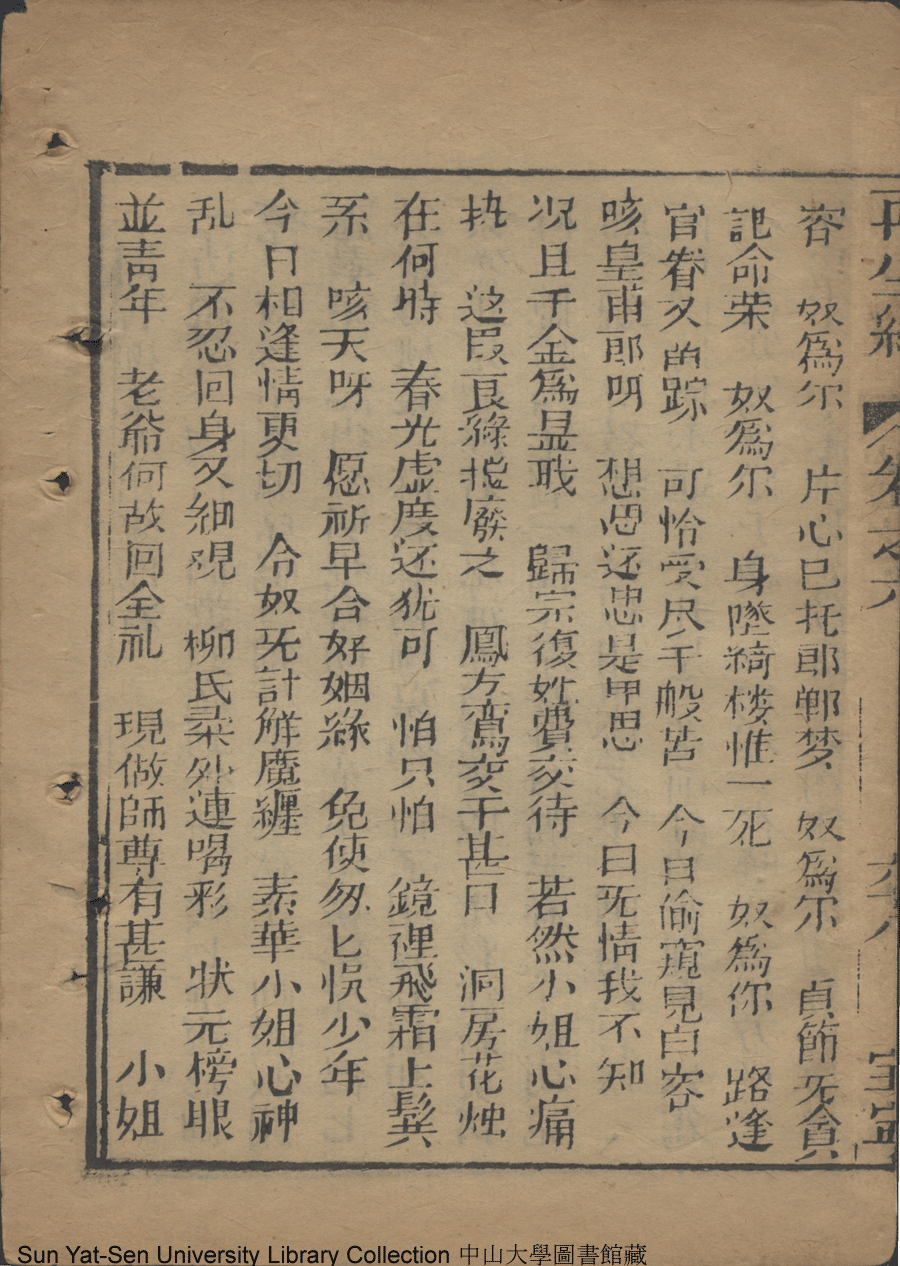 再生緣 卷之六
容 奴為尔 片心已托邯郸梦 奴為尔 貞節无貪
記命荣 奴為尔 身墜綺楼惟一死 奴為你 路逢
官眷又的踪 可怜受尽千般苦 今日偷窺見白容
咳皇甫郎呀 想思还思是甲思 今日无情我不知
况且千金為显戝 歸宗復姓費交待 若然小姐心痛
执 这段良緣抛廢之 鳳方鸾交干甚日 洞房花烛
在何時 春光虚度还犹可 怕只怕 鏡裡飛霜上鬓
系 咳天呀 愿祈早合好姻緣 免使匆匕悮少年
今日相逢情更切 令奴无計觧魔纒 素華小姐心神
乱 不忍回身又細观 柳氏朵外連喝彩 状元榜眼
並青年 老爺何故回全礼 現做師尊有甚謙 小姐
Sun Yat-Sen University Library Collection 中山大學圖書館藏